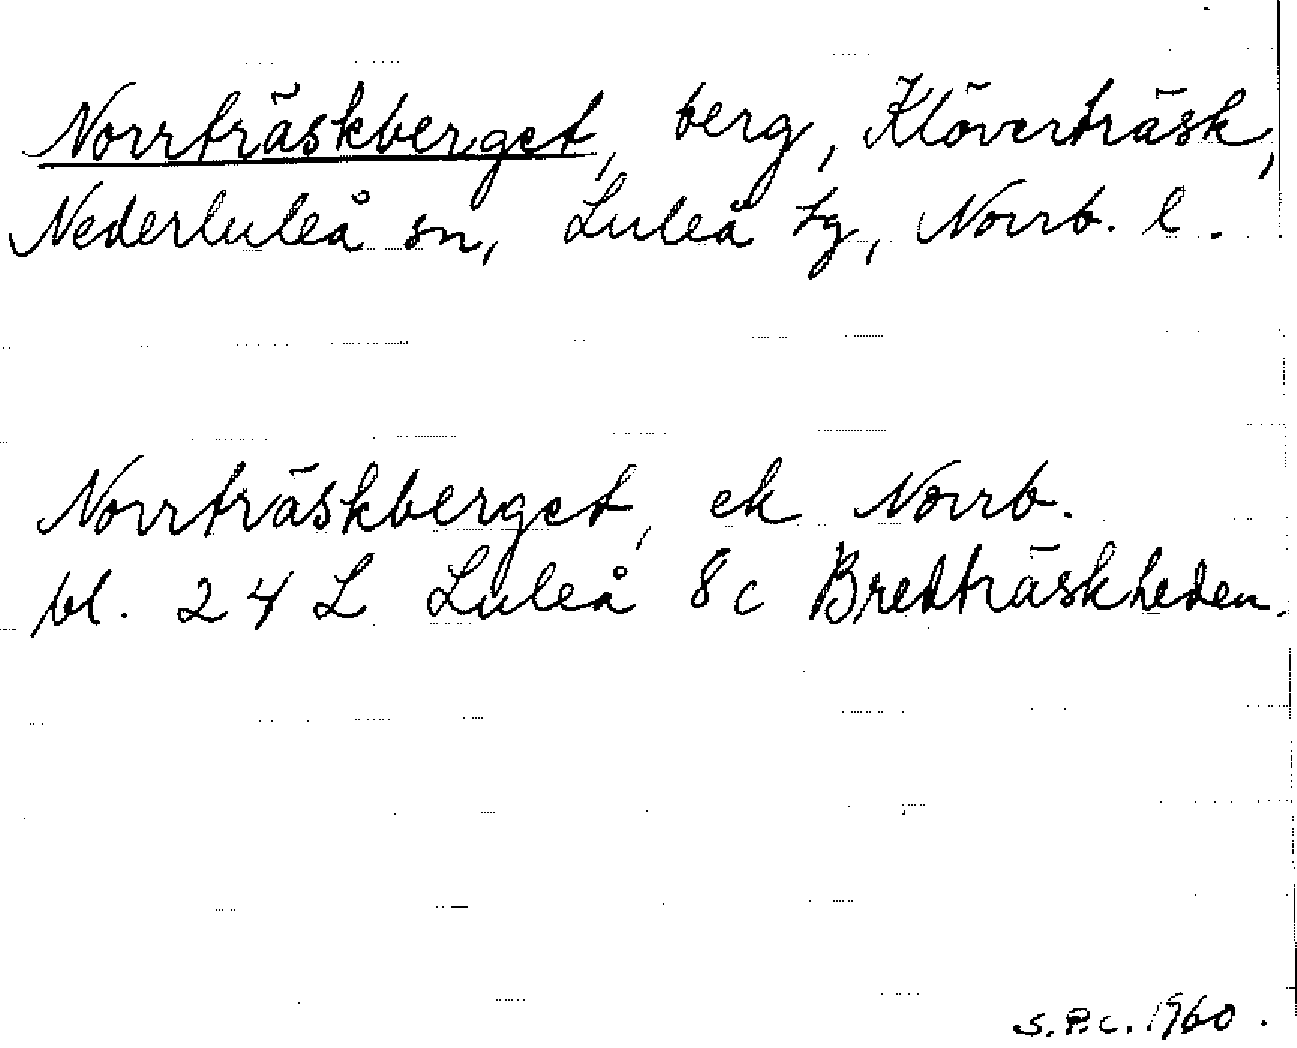 Norrträskberget, berg, Klöverträsk,
Nederluleå sn, Luleå tg, Norrb. l.
Norrträskberget, ek Norrb.
bl. 24 L Luleå 8c Bredträskheden.
S.P.C. 1960.